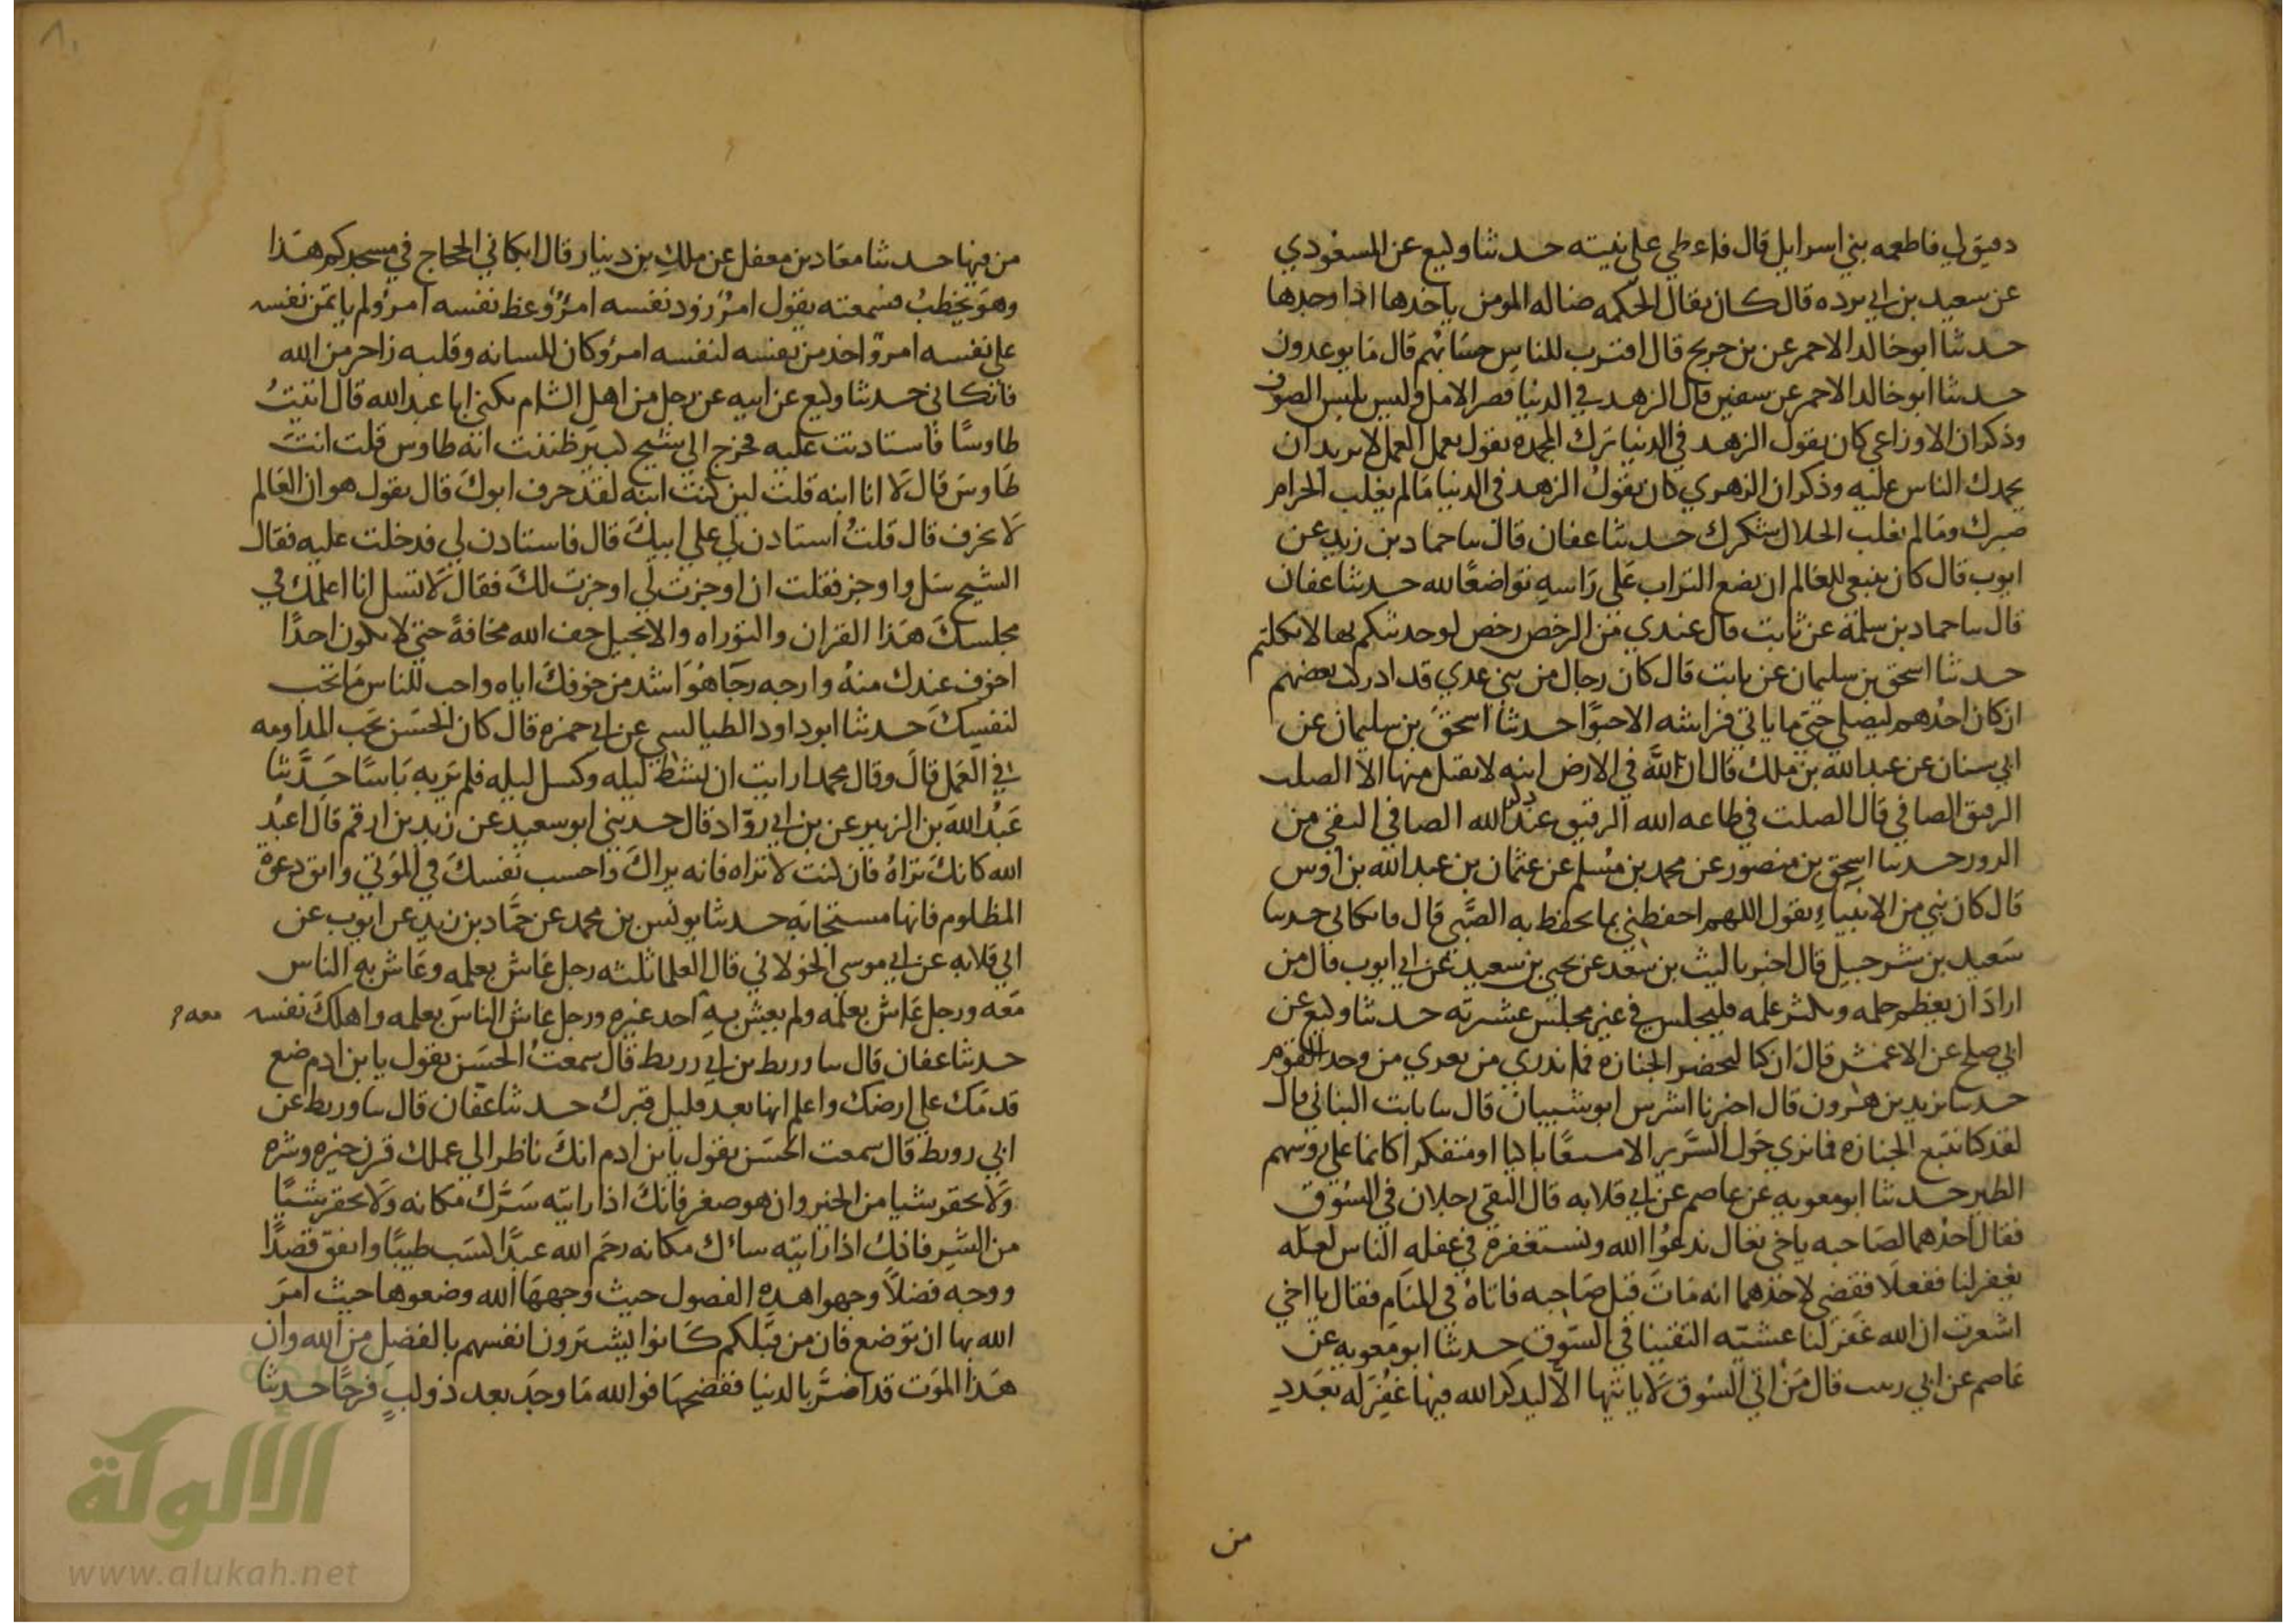 دقيق لي فاطعمه بني اسرايل قال فاعطي علي نيته حدثنا وكيع عن المسعودي
عن سعيد بن ابي برده قال كان يقال الحكمه ضاله المومن ياخدها اذا وجدها
حدثنا ابو خالد الاحمر عن بن جريج قال اقترب للناس حسابهم قال ما يوعدون
حدثنا ابو خالد الاحمر عن سفين قال الزهد في الدنيا قصر الامل وليس بلبس الصوف
وذكر ان الاوزاعي كان يقول الزهد في الدنيا ترك المحمدة يقول يعمل العمل لا يريد ان
يحمدك الناس عليه وذكر ان الزهري كان يقول الزهد في الدنيا مالم يغلب الحرام
صبرك ومالم يغلب الحلال شكرك حدثنا عفان قال سا حماد بن زيد عن
ايوب قال كان ينبغي للعالم ان يضع التراب علي راسه تواضعا لله حدثنا عفان
قال سا حماد بن سلمة عن ثابت قال عندي من الرخص رخص لوحدثتكم بها لاتكلتم
حدثنا اسحق بن سليمان عن ثابت قال كان رجال من بني عدي قد ادركت بعضهم
ان كان احدهم ليصلي حتي ما ياتي فراشه الا حبوا حدثنا اسحق بن سليمان عن
ابي سنان عن عبدالله بن ملك قال ان لله في الارض انيه لا يقبل منها الا الصلب
الرقيق الصافي قال الصلت في طاعه الله الرقيق عند ذكر الله الصافي النقي من
الدرن حدثنا اسحق بن منصور عن محمد بن مسلم عن عثمان بن عبدالله بن اوس
قال كان نبي من الانبياء يقول اللهم احفظني بما تحفظ به الصبي قال فابكاني حدثنا
سعيد بن شرحبيل قال اخبرنا ليث بن سعد عن يحي بن سعيد عن ابي ايوب قال من
اراد ان يعظم حلمه ويكثر علمه فليجلس في غير مجلس عشيرته حدثنا وكيع عن
ابي صلح عن الاعمش قال ان كنا لنحضر الجنازه فما ندري من يعزي من وجد القوم
حدثنا يزيد بن هرون قال اخبرنا اشرس ابو شيبان قال سا ثابت البناني قال
لقد كنا نتبع الجنازه فما نري حول السرير الا متقنعا باكيا او متفكرا كانما علي روسهم
الطير حدثنا ابومعويه عن عاصم عن ابي قلابه قال التقي رجلان في السوق
فقال احدهما لصاحبه ياخي تعال ندعوا الله ونستغفره في غفله الناس لعله
يغفر لنا ففعلا فقضي لاحدهما انه مات قبل صاحبه فاتاه في المنام فقال يا اخي
اشعرت ان الله غفر لنا عشيته التقينا في السوق حدثنا ابو معويه عن
عاصم عن ابي قال من اتي السوق لا ياتيها الا ليذكر الله فيها غفر له بعدد
من
من فيها حدثنا معاد بن معفل عن ملك بن دينار قال ابكاني الحجاج في مسجدكم هذا
وهو يخطب فسمعته يقول امرؤ زود نفسه امرؤ وعظ نفسه امرؤ لم ياتمن نفسه
علي نفسه امرؤ اخذ من نفسه لنفسه امرؤ كان للسانه وقلبه زاجر من الله
فابكاني حدثنا وكيع عن ابيه عن رجل من اهل الشام يكني ابا عبدالله قال اتيت
طاوسا فاستاذنت عليه فخرج الي شيخ كبير ظننت انه طاوس قلت انت
طاوس قال لا انا ابنه قلت لين كنت ابنه لقد خرف ابوك قال يقول هو ان العالم
لا يخرف قال قلت استادن لي علي ابيك قال فاستادن لي فدخلت عليه فقال
الشيخ سل واوجز فقلت ان اوجزت لي اوجزت لك فقال لا تسل انا اعلمك في
مجلسك هذا القران والتوراه والانجيل خف الله مخافة حتي لا يكون احدا
اخوف عندك منه وارجه رجا هو اشد من خوفك اياه واحب للناس ما تحب
لنفسك حدثنا ابو داود الطيالسي عن ابي حمزه قال كان الحسن يحب المداومه
في العمل قال وقال محمد ارايت ان نشط ليله وكسل ليله فلم ير به باسا حدثنا
عبدالله بن الزبير عن بن ابي رواد قال حدثني ابو سعيد عن زيد بن ارقم قال اعبد
الله كانك تراه فان كنت لا تراه فانه يراك واحسب نفسك في الموتي واتق دعوة
المظلوم فانها مستجابه حدثنا يونس بن محمد عن حماد بن زيد عن ايوب عن
ابي قلابه عن ابي موسي الخولاني قال العلما ثلثه رجل عاش بعلمه وعاش به الناس
معه ورجل عاش بعلمه ولم يعش به احد غيره ورجل عاش الناس بعلمه واهلك نفسه
معه
حدثنا عفان قال سا وريط بن ابي رريط قال سمعت الحسن يقول يا بن ادم ضع
قدمك علي ارضك واعلم انها بعد قليل قبرك حدثنا عفان قال سا وريط عن
ابي روبط قال سمعت الحسن يقول يا بن ادم انك ناظر الي عملك قرن خيره وشره
ولا تحقر شيا من الخير وان هو صغر فانك اذا رايته سرك مكانه ولا تحقر شيا
من الشر فانك اذا رايته ساك مكانه رحم الله عبدا كسب طيبا وانفق قصدا
ووجه فضلا وجهوا هده الفضول حيث وجهها الله وضعوها حيث امر
الله بها ان توضع فان من قبلكم كانوا يشترون انفسهم بالفضل من الله وان
هذا الموت قد اضر بالدنيا ففضحها فوالله ما وجد بعد ذو لب فرحا حدثنا
الألوكة
www.alukah.net